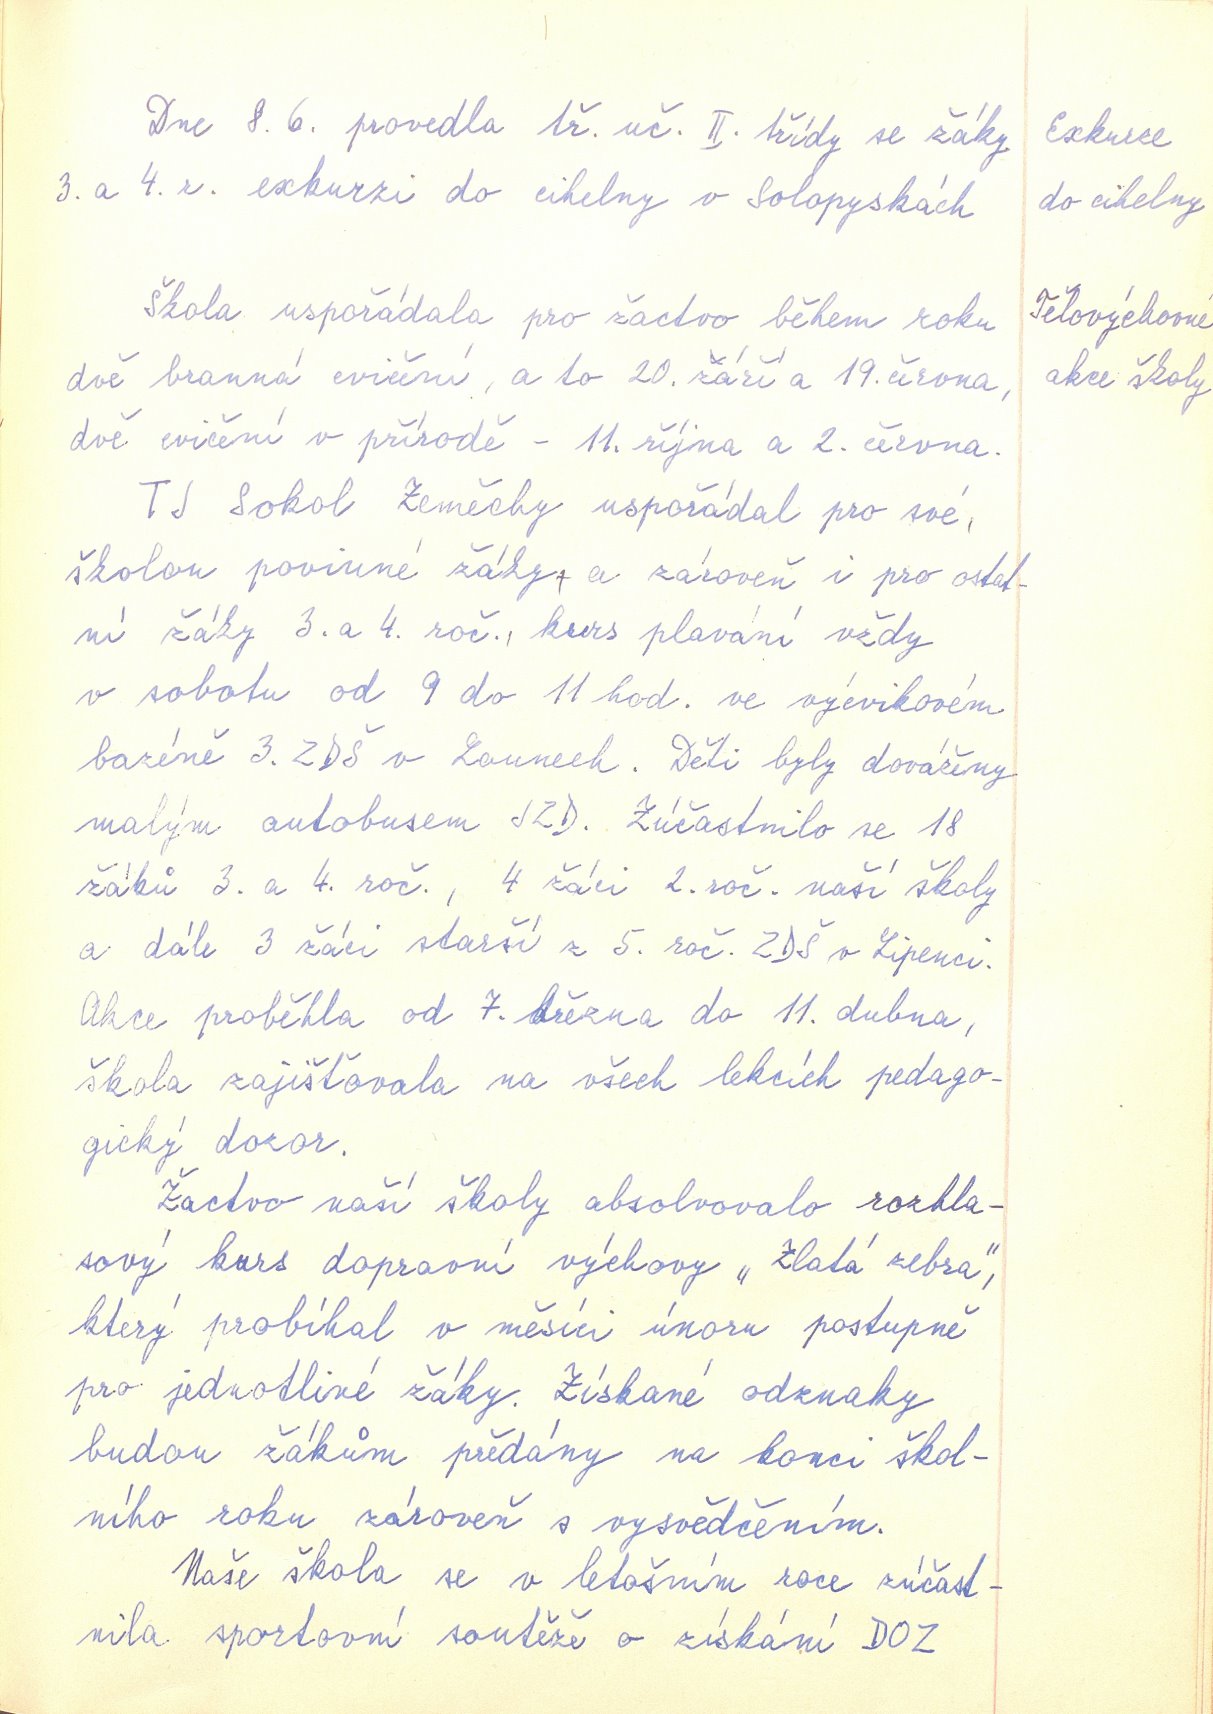 Dne 8. 6. provedla tř. uč. II. třídy se žáky
3. a 4. r. exkurzi do cihelny v Solopyskách
Exkurce
do cihelny
Škola uspořádala pro žactvo během roku
dvě branná cvičení, a to 20. září a 19. června,
dvě cvičení v přírodě - 11. října a 2. června.
Tělovýchovné
akce školy
TJ Sokol Zeměchy uspořádal pro své,
školou povinné žáky, a zároveň i pro ostat-
ní žáky 3. a 4. roč., kurs plavání vždy
v sobotu od 9 do 11 hod. ve výcvikovém
bazéně 3. ZDŠ v Lounech. Děti byly dováženy
malým autobusem JZD. Zúčastnilo se 18
žáků 3. a 4. roč., 4 žáci 2. roč. naší školy
a dále 3 žáci starší z 5. roč. ZDŠ v Lipenci.
Akce proběhla od 7. března do 11. dubna,
škola zajišťovala na všech lekcích pedago-
gický dozor.
Žactvo naší školy absolvovalo rozhla-
sový kurs dopravní výchovy „Zlatá zebra",
který probíhal v měsíci únoru postupně
pro jednotlivé žáky. Získané odznaky
budou žákům předány na konci škol-
ního roku zároveň s vysvědčením.
Naše škola se v letošním roce zúčast-
nila sportovní soutěže o získání DOZ